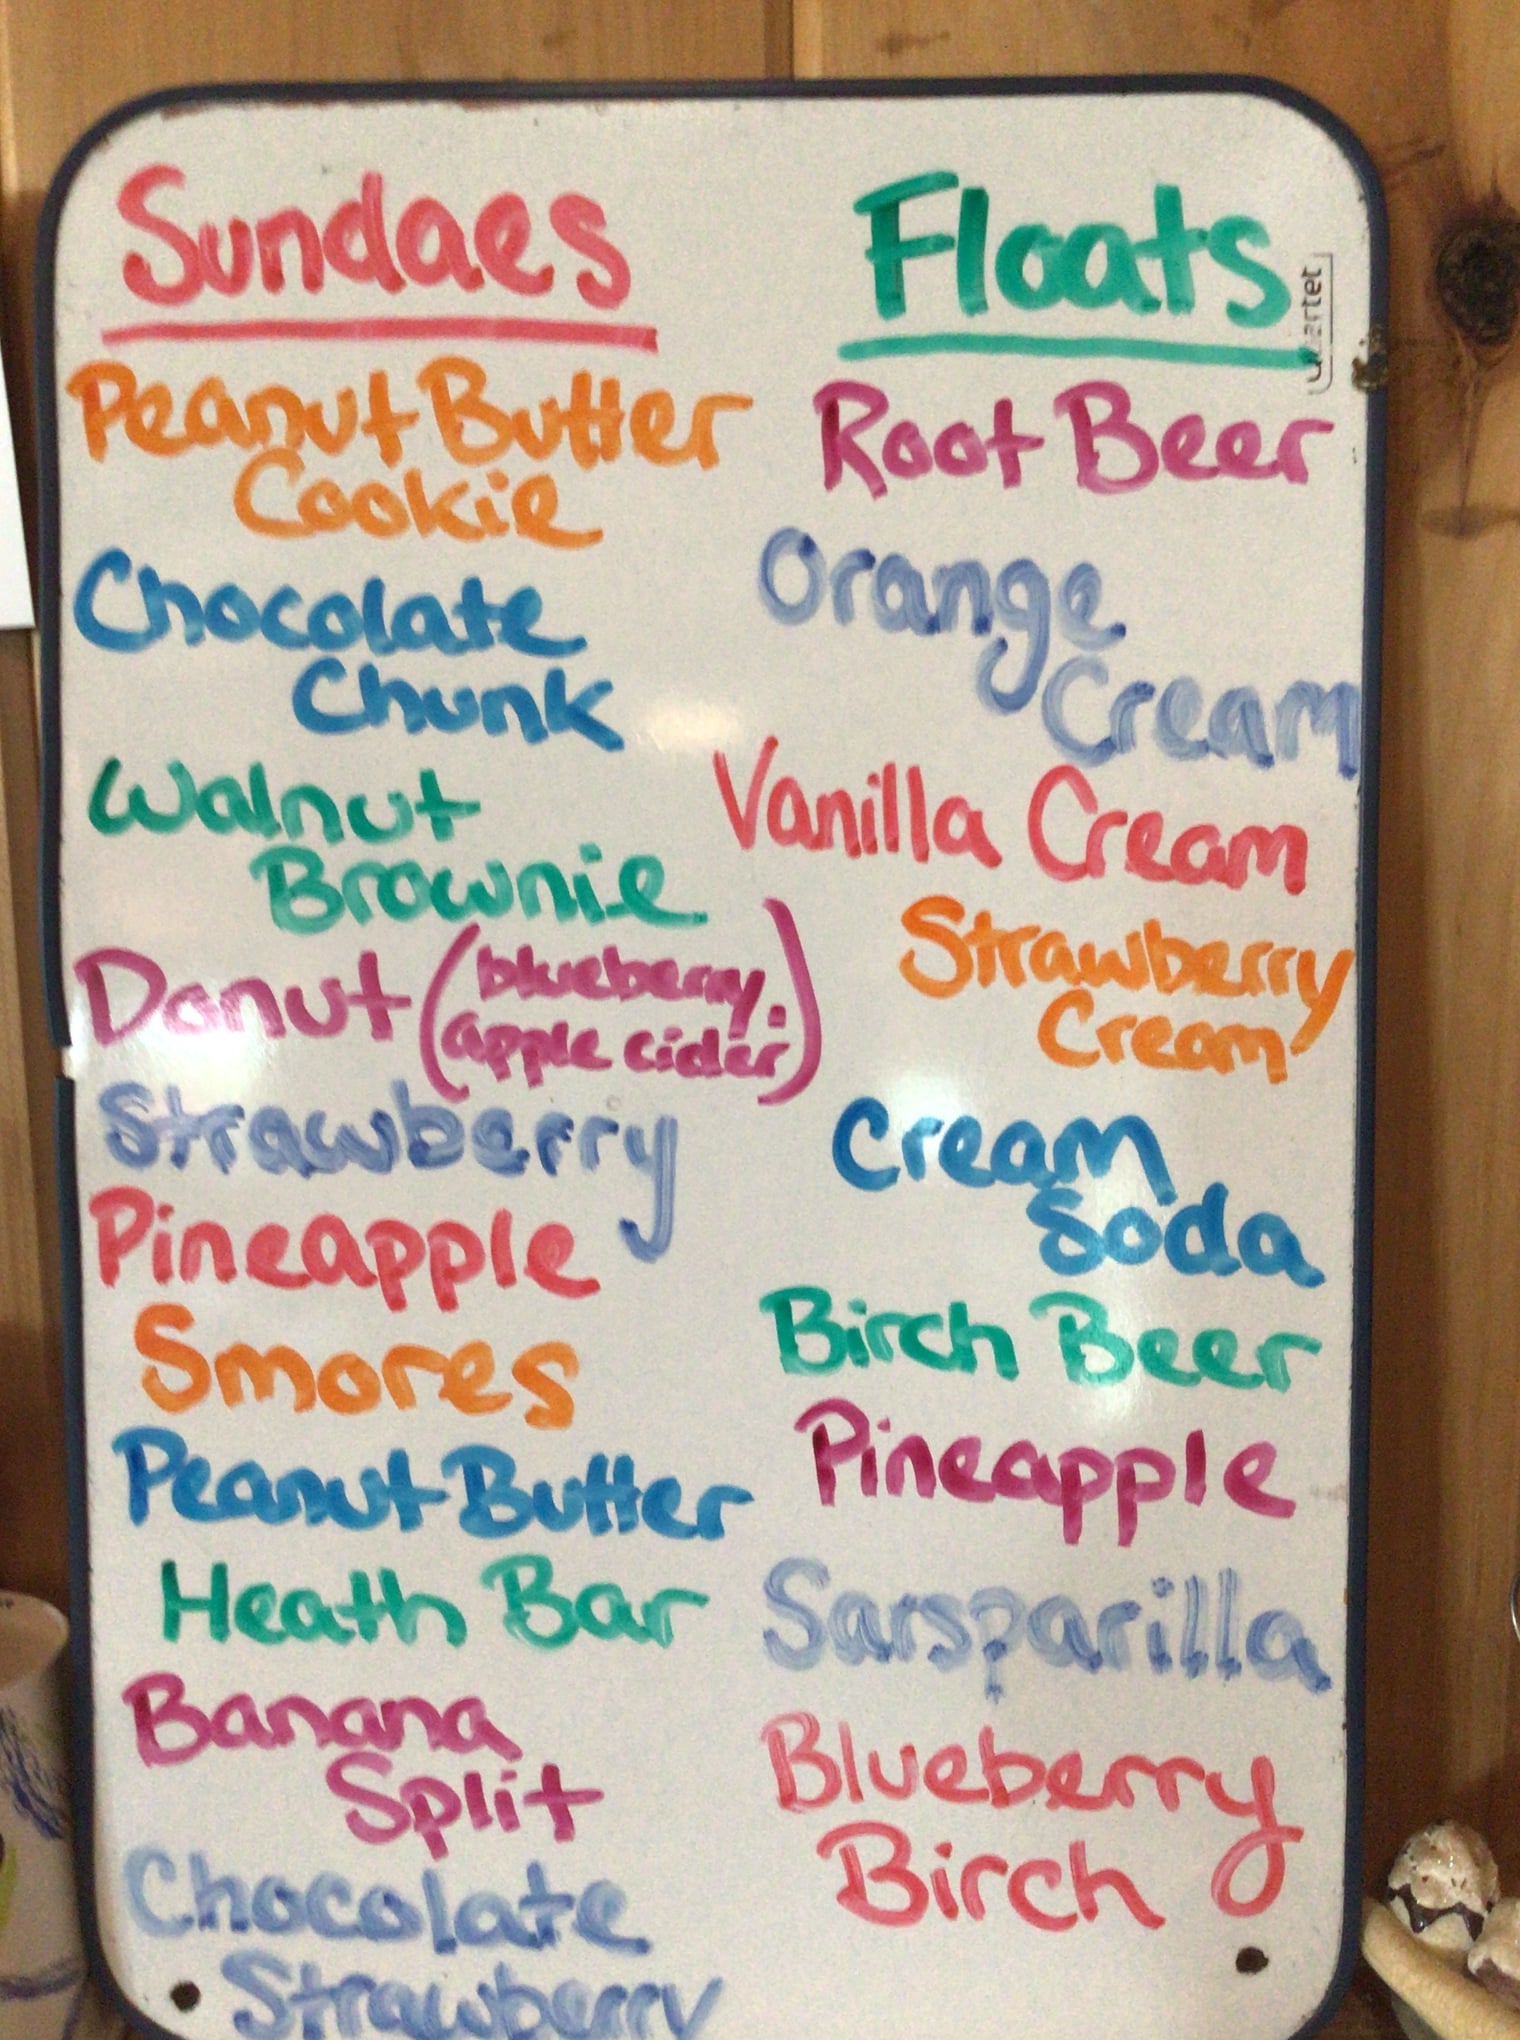 Sundaes
Peanut Butter
Cookie
Chocolate
Chunk
Walnut
Brownie
Donut (blueberry.
apple cider)
Strawberry
Pineapple
Smores
Peanut Butter
Heath Bar
Banana
Split
Chocolate
Strawberry
Floats
Root Beer
Orange
Cream
Vanilla Cream
Strawberry
Cream
Cream
Soda
Birch Beer
Pineapple
Sarsparilla
Blueberry
Birch